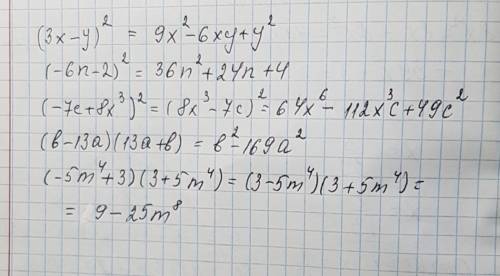 (3x-y)² = 9x²-6xy+y²
(-6n-2)² = 36n²+24n+4
(-7c+8x³)² = (8x³-7c)² = 64x⁶- 112x³c+49c²
(в-13a)(13a+в) = в²-169a²
(-5m⁴+3)(3+5m⁴) = (3-5m⁴)(3+5m⁴) =
= 9-25m⁸